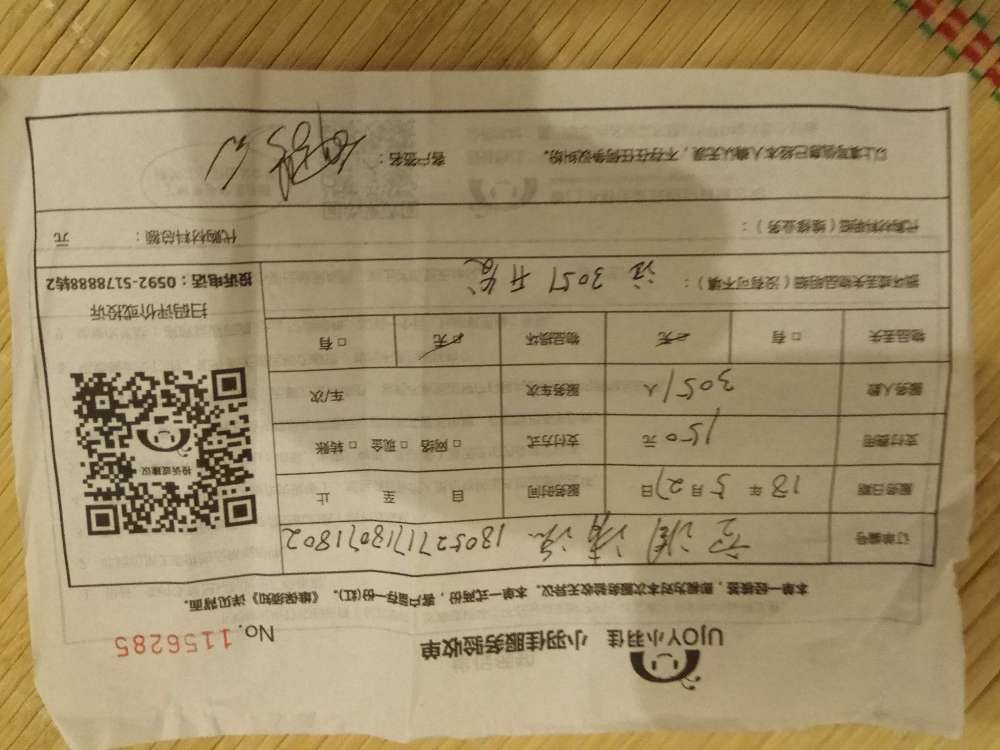 UJOY小羽佳 小羽佳服务验收单
No. 1156285
本单一经接签，即视为对本次服务验收无异议。本单一式两份，客户留存一份(红)。《维保须知》详见背面。
订单编号 空调清洗 180527171180971802
服务日期 18 年 5 月 27 日 服务时间 自 至 止
支付费用 150 元 支付方式 □ 网络 □ 现金 □ 转账
服务人数 3051 人 服务车次 车/次
物品丢失 □ 有 □ 无 物品损坏 □ 无 □ 有
投诉或建议
扫码评价或投诉
投诉电话：0592-5178888转2
损坏或丢失物品明细（没有可不填）： 注 3051 开发
代购材料明细（维修业务）： 代购材料总额： 元
以上填写信息已经本人确认无误，不存在任何争议纠纷。 客户签名：